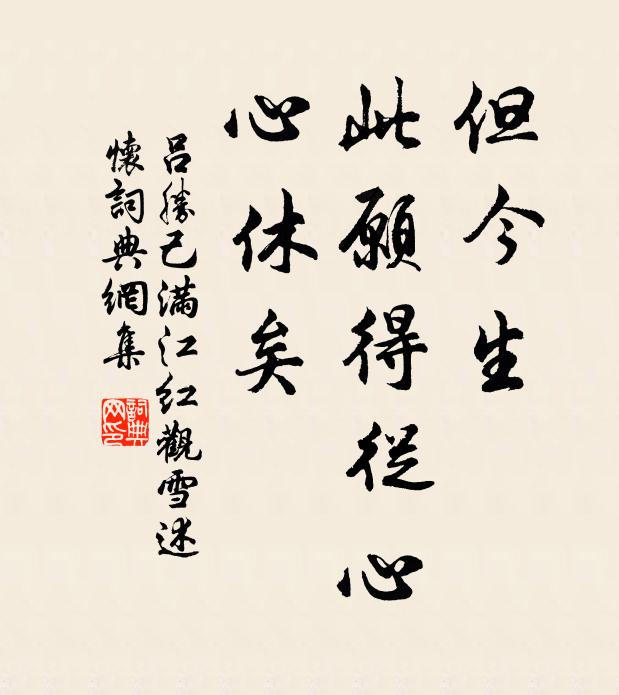 但今生
此願得從心
心休矣
呂勝己滿江红觀雪述
懷詞典網集
詞典
网印